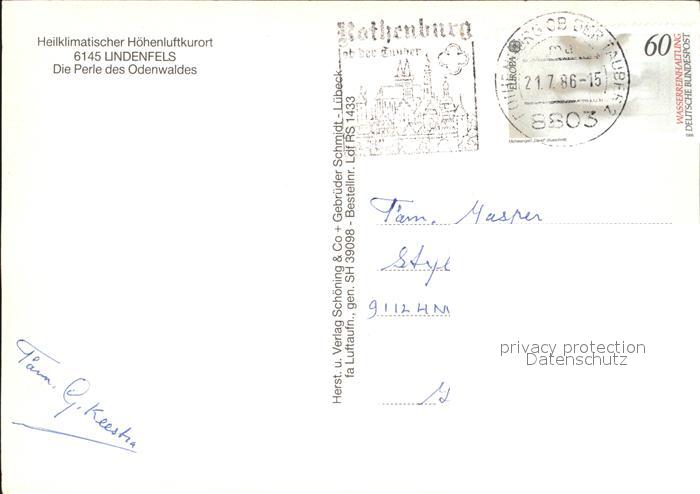 Heilklimatischer Höhenluftkurort
6145 LINDENFELS
Die Perle des Odenwaldes
Rothenburg
ob der Tauber
ROTHENBURG OB DER TAUBER 2
ma
21.7.86-15
8803
EUROPA
60
WASSERREINHALTUNG
DEUTSCHE BUNDESPOST
Herst. u. Verlag Schöning & Co + Gebrüder Schmidt - Lübeck
fa Luftaufn., gen. SH 39098 - Bestellnr. Ldf RS 1433
Fam.
9112 HM
privacy protection
Datenschutz
Fam. G. Keestra